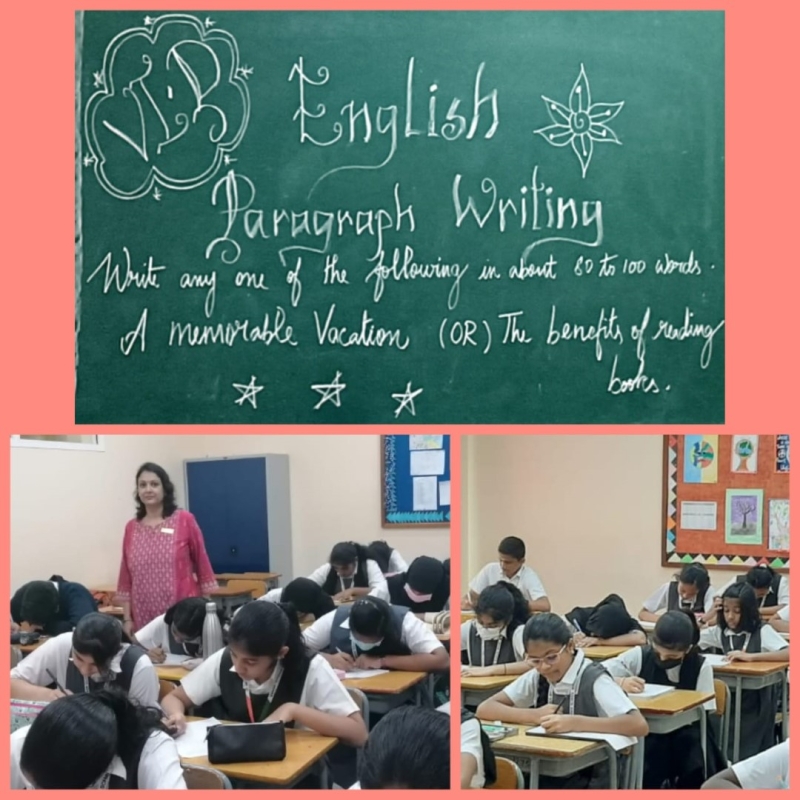 V.I.P
English
Paragraph Writing
Write any one of the following in about 80 to 100 words.
A memorable Vacation (OR) The benefits of reading
books.